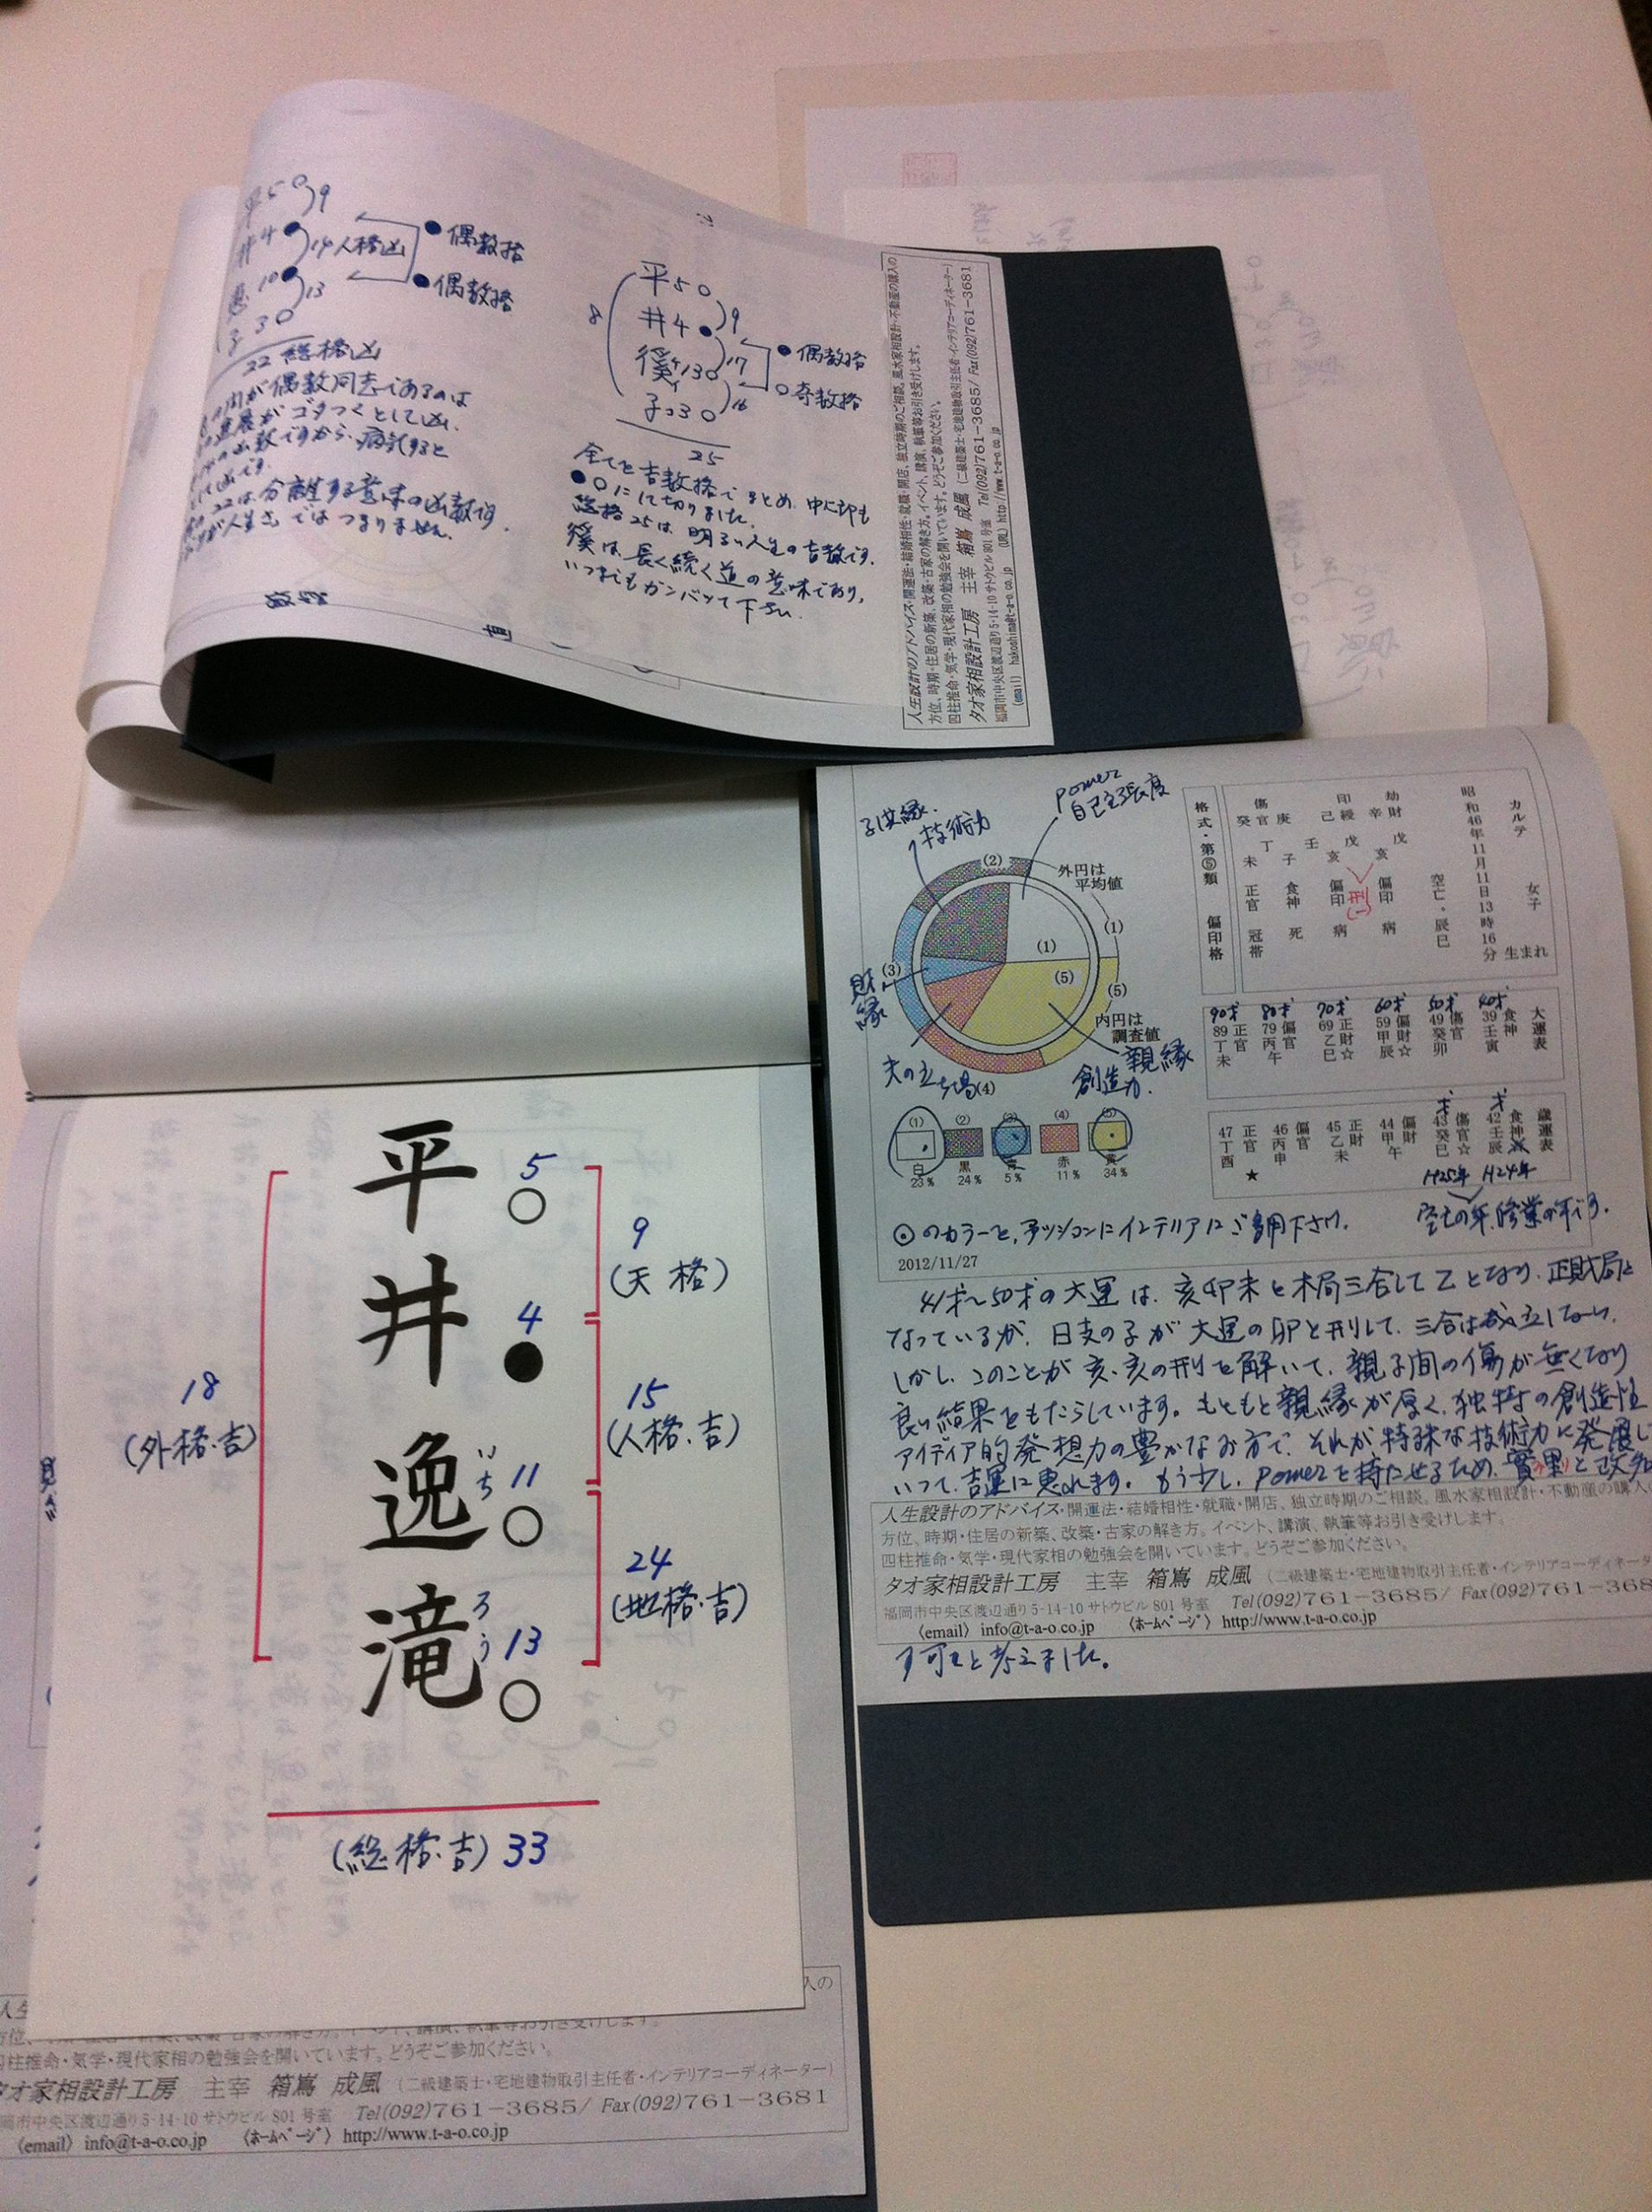 平 5 ○
井 4 ● 9
14 人格凶
10 ● 13
子 3 ○
22 総格凶
● 偶数格
● 偶数格
が偶数同志であるのは
がゴタつくとして凶.
凶数ですから、病気すると
22は、分離する意味の凶数です.
ではつまりません.
8
平 5 ○
井 4 ● 9
徯 13 ○ 17
子 3 ○ 16
25
● 偶数格
○ 奇数格
全てを吉数格でまとめ、中心部も
● ○にして切りました.
総格25は、明るい人生の吉数です.
徯は、長く続く道の意味であり、
いつまでもガンバッて下さい.
人生設計のアドバイス・開運法・結婚相性・就職・開店、独立時期のご相談。風水家相設計・不動産の購入の
方位、時期・住居の新築、改築・古家の解き方。イベント、講演、執筆等お引き受けします。
四柱推命・気学・現代家相の勉強会を開いています。どうぞご参加ください。
タオ家相設計工房 主宰 箱嶌 成風 (二級建築士・宅地建物取引主任者・インテリアコーディネーター)
福岡市中央区渡辺通り5-14-10 サトウビル 801 号室 Tel(092)761-3685/ Fax(092)761-3681
(email) hakoshima@t-a-o.co.jp (URL) http://www.t-a-o.co.jp
カルテ 女子
昭和46年11月11日13時16分 生まれ
空亡・辰巳
劫財 辛 戊 亥 偏印 病
印綬 己 戊 亥 偏印 病
庚 壬 子 食神 死
傷官 癸 丁 未 正官 冠帯
格式・第⑤類 偏印格
子供縁.
技術力
power
自己主張度
外円は
平均値
(1)
(2)
(3)
(4)
(5)
(1)
(5)
内円は
調査値
財縁
夫の立場
親縁
創造力.
大運表
40才 食神 39 壬寅
50才 傷官 49 癸卯
60才 偏財☆ 59 甲辰
70才 正財☆ 69 乙巳
80才 偏官 79 丙午
90才 正官 89 丁未
歳運表
才 食神 42 壬辰
才 傷官☆ 43 癸巳
偏財 44 甲午
正財 45 乙未
偏官 46 丙申
正官 47 丁酉 ★
H25年 H24年
空亡の年、修業の年です.
(1) (2) (3) (4) (5)
白 黒 青 赤 黄
23% 24% 5% 11% 34%
⊙のカラーを、ファッションにインテリアにご多用下さい.
2012/11/27
41才〜50才の大運は、亥卯未と木局三合して乙となり、正財局と
なっているが、日支の子が大運の卯と刑して、三合は成立しない.
しかし、このことが亥、亥の刑を解いて、親子間の傷が無くなり
良い結果をもたらしています。もともと親縁が厚く、独特の創造性
アイディア的発想力の豊かなお方で、それが特殊な技術力に発展し
いって、吉運に恵れます。もう少し、powerを持たせるため、實果と改名
人生設計のアドバイス・開運法・結婚相性・就職・開店、独立時期のご相談。風水家相設計・不動産の購入の
方位、時期・住居の新築、改築・古家の解き方。イベント、講演、執筆等お引き受けします。
四柱推命・気学・現代家相の勉強会を開いています。どうぞご参加ください。
タオ家相設計工房 主宰 箱嶌 成風 (二級建築士・宅地建物取引主任者・インテリアコーディネータ
福岡市中央区渡辺通り5-14-10 サトウビル 801 号室 Tel(092)761-3685/ Fax(092)761-368
〈email〉 info@t-a-o.co.jp 〈ホームページ〉 http://www.t-a-o.co.jp
す可しと考えました。
平 5 ○
井 4 ●
逸 いち 11 ○
滝 ろう 13 ○
9
(天格)
15
(人格.吉)
24
(地格.吉)
18
(外格.吉)
(総格.吉) 33
入の
四柱推命・気学・現代家相の勉強会を開いています。どうぞご参加ください。
タオ家相設計工房 主宰 箱嶌 成風 (二級建築士・宅地建物取引主任者・インテリアコーディネーター)
岡市中央区渡辺通り5-14-10 サトウビル 801 号室 Tel(092)761-3685/ Fax(092)761-3681
〈email〉 info@t-a-o.co.jp 〈ホームページ〉 http://www.t-a-o.co.jp